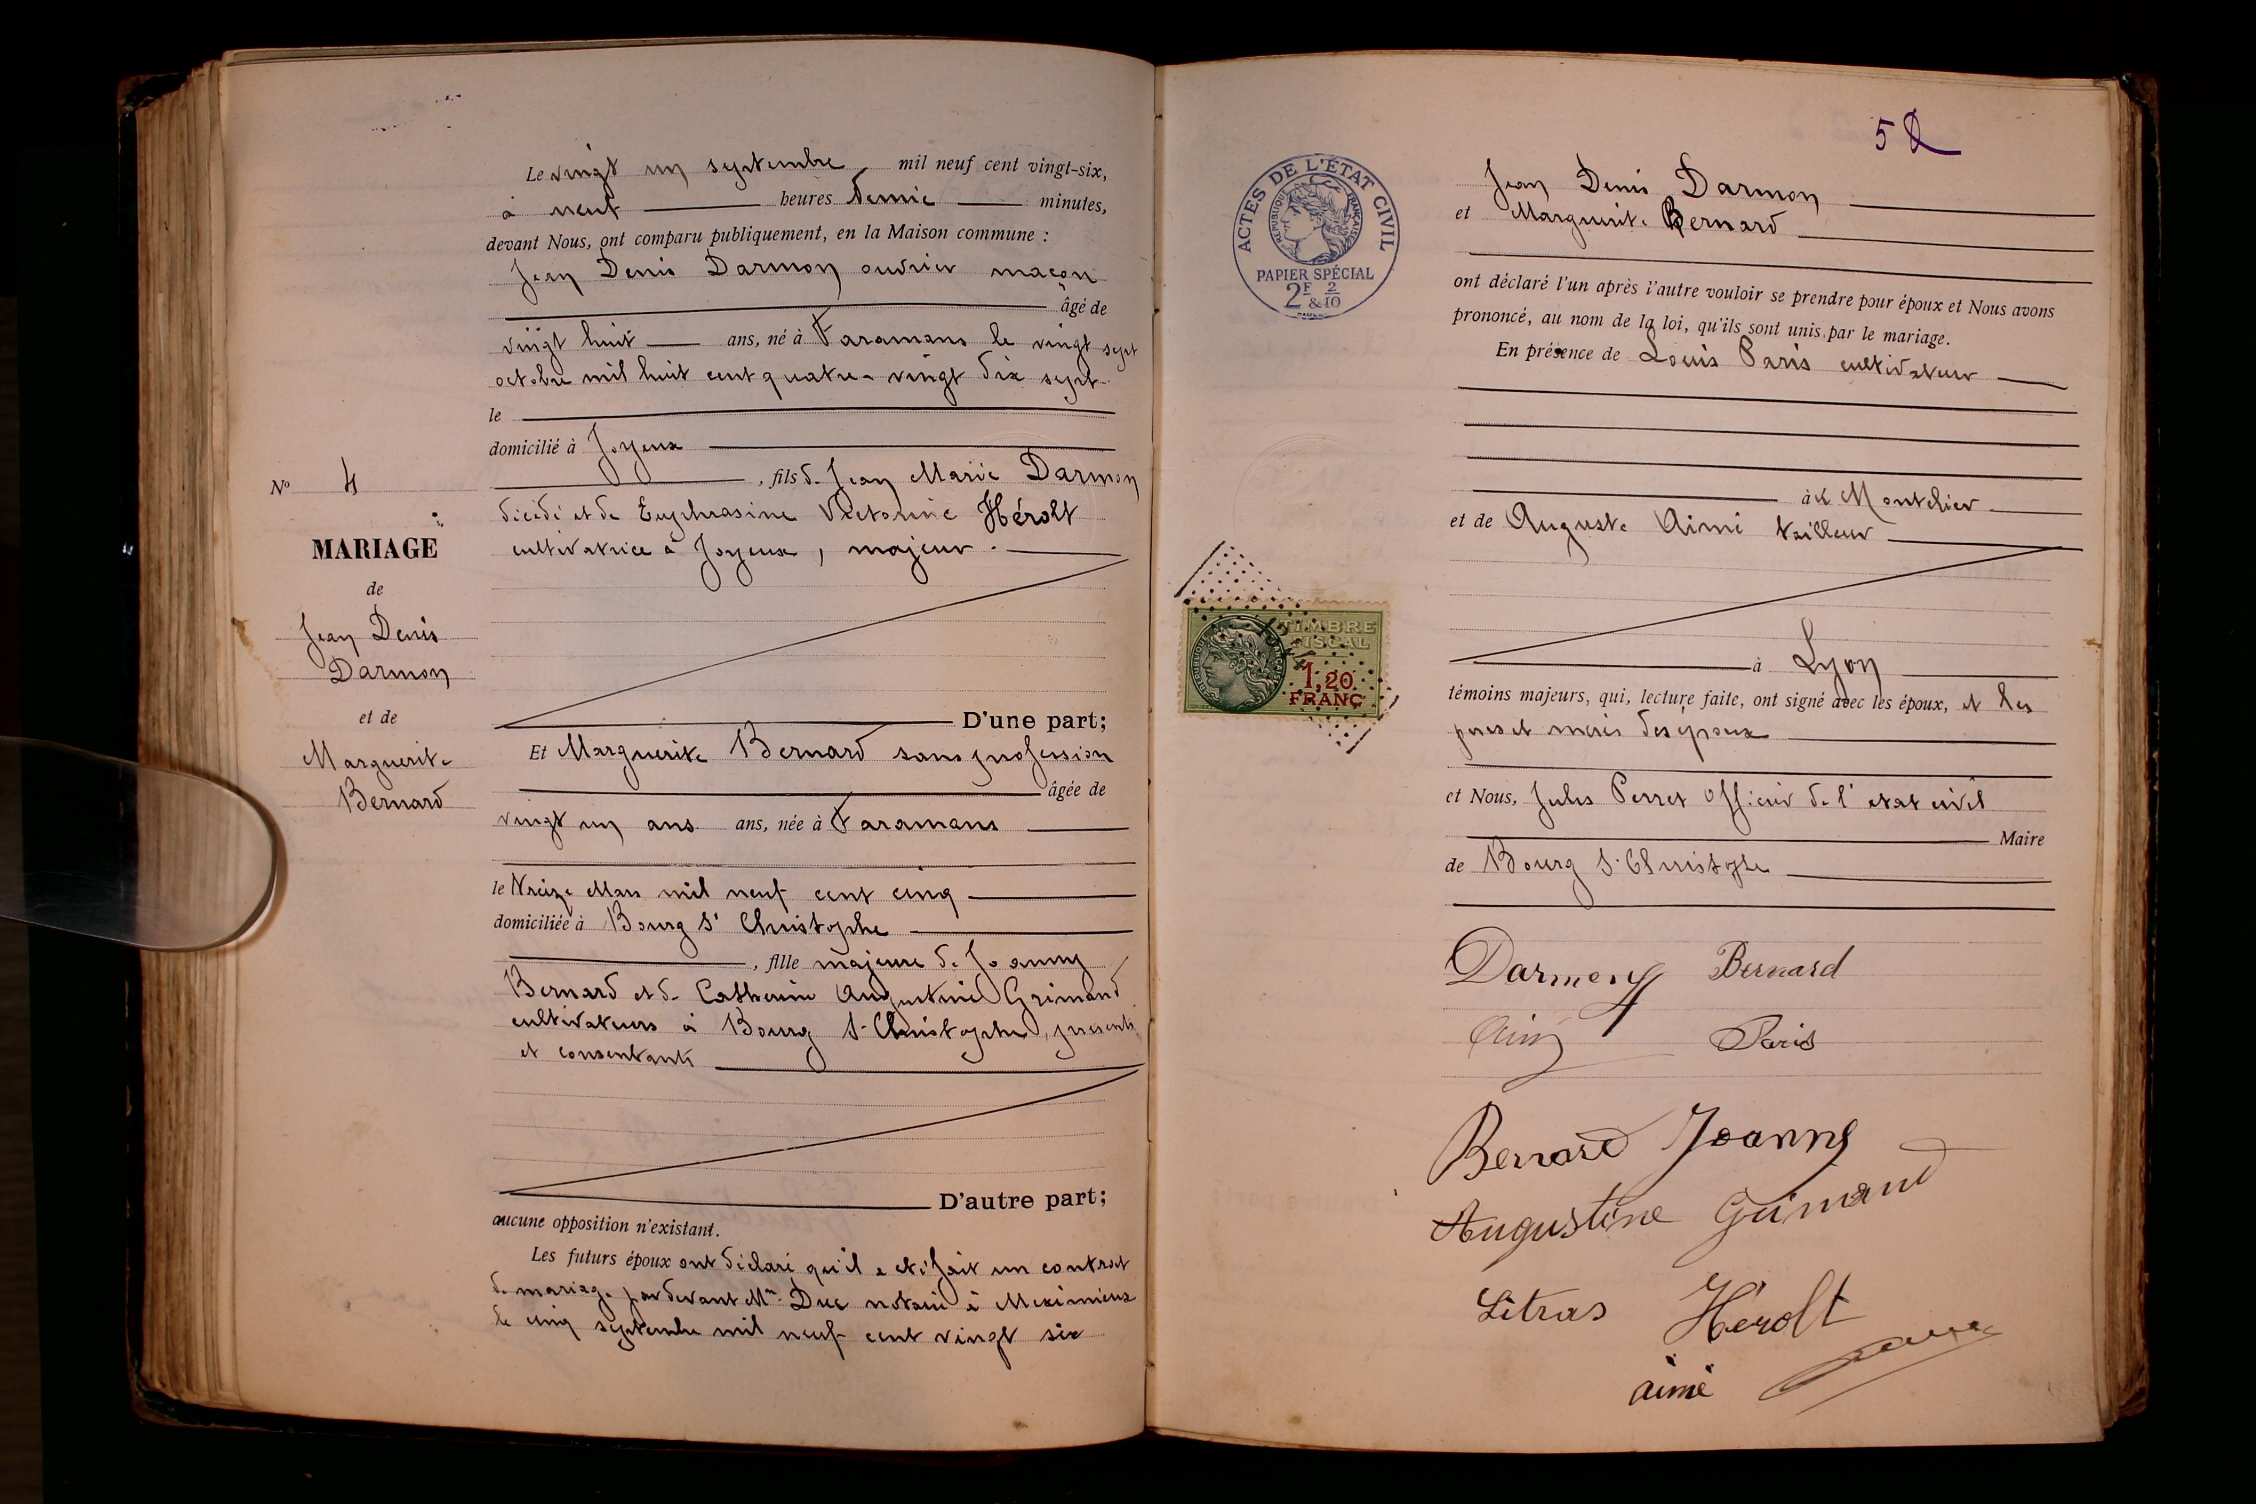 Le vingt un septembre mil neuf cent vingt-six,
à neuf heures demie minutes,
devant Nous, ont comparu publiquement, en la Maison commune :
Jean Denis Darmon ouvrier maçon
âgé de
vingt huit ans, né à Faramans le vingt sept
octobre mil huit cent quatre-vingt dix sept
le
domicilié à Joyeux
, fils de Jean Marie Darmon
décédé et de Euphrasine Victorine Hérolt
cultivatrice à Joyeux, majeur.
D'une part;
Et Marguerite Bernard sans profession
âgée de
vingt un ans ans, née à Faramans
le treize Mars mil neuf cent cinq
domiciliée à Bourg St Christophe
, fille majeure de Joanny
Bernard et de Catherine Augustine Grimand
cultivateurs à Bourg St Christophe, présents
et consentants
D'autre part;
aucune opposition n'existant.
Les futurs époux ont déclaré qu'il a été fait un contrat
de mariage par devant Me Duc notaire à Meximieux
le cinq septembre mil neuf cent vingt six
No 4
MARIAGE
de
Jean Denis
Darmon
et de
Marguerite
Bernard
52
ACTES DE L'ÉTAT CIVIL
RÉPUBLIQUE FRANÇAISE
PAPIER SPÉCIAL
2F & 2/10
Jean Denis Darmon
et Marguerite Bernard
ont déclaré l'un après l'autre vouloir se prendre pour époux et Nous avons
prononcé, au nom de la loi, qu'ils sont unis par le mariage.
En présence de Louis Paris cultivateur
à Montelier
et de Auguste Aimé tailleur
à Lyon
TIMBRE
FISCAL
1,20
FRANC
témoins majeurs, qui, lecture faite, ont signé avec les époux, et les
peres et meres des époux
et Nous, Jules Perret Officier de l'etat civil
Maire
de Bourg St Christophe
Darmon Bernard
Paris
Bernard Joanny
Augustine Grimand
Litras Hérolt
aimé